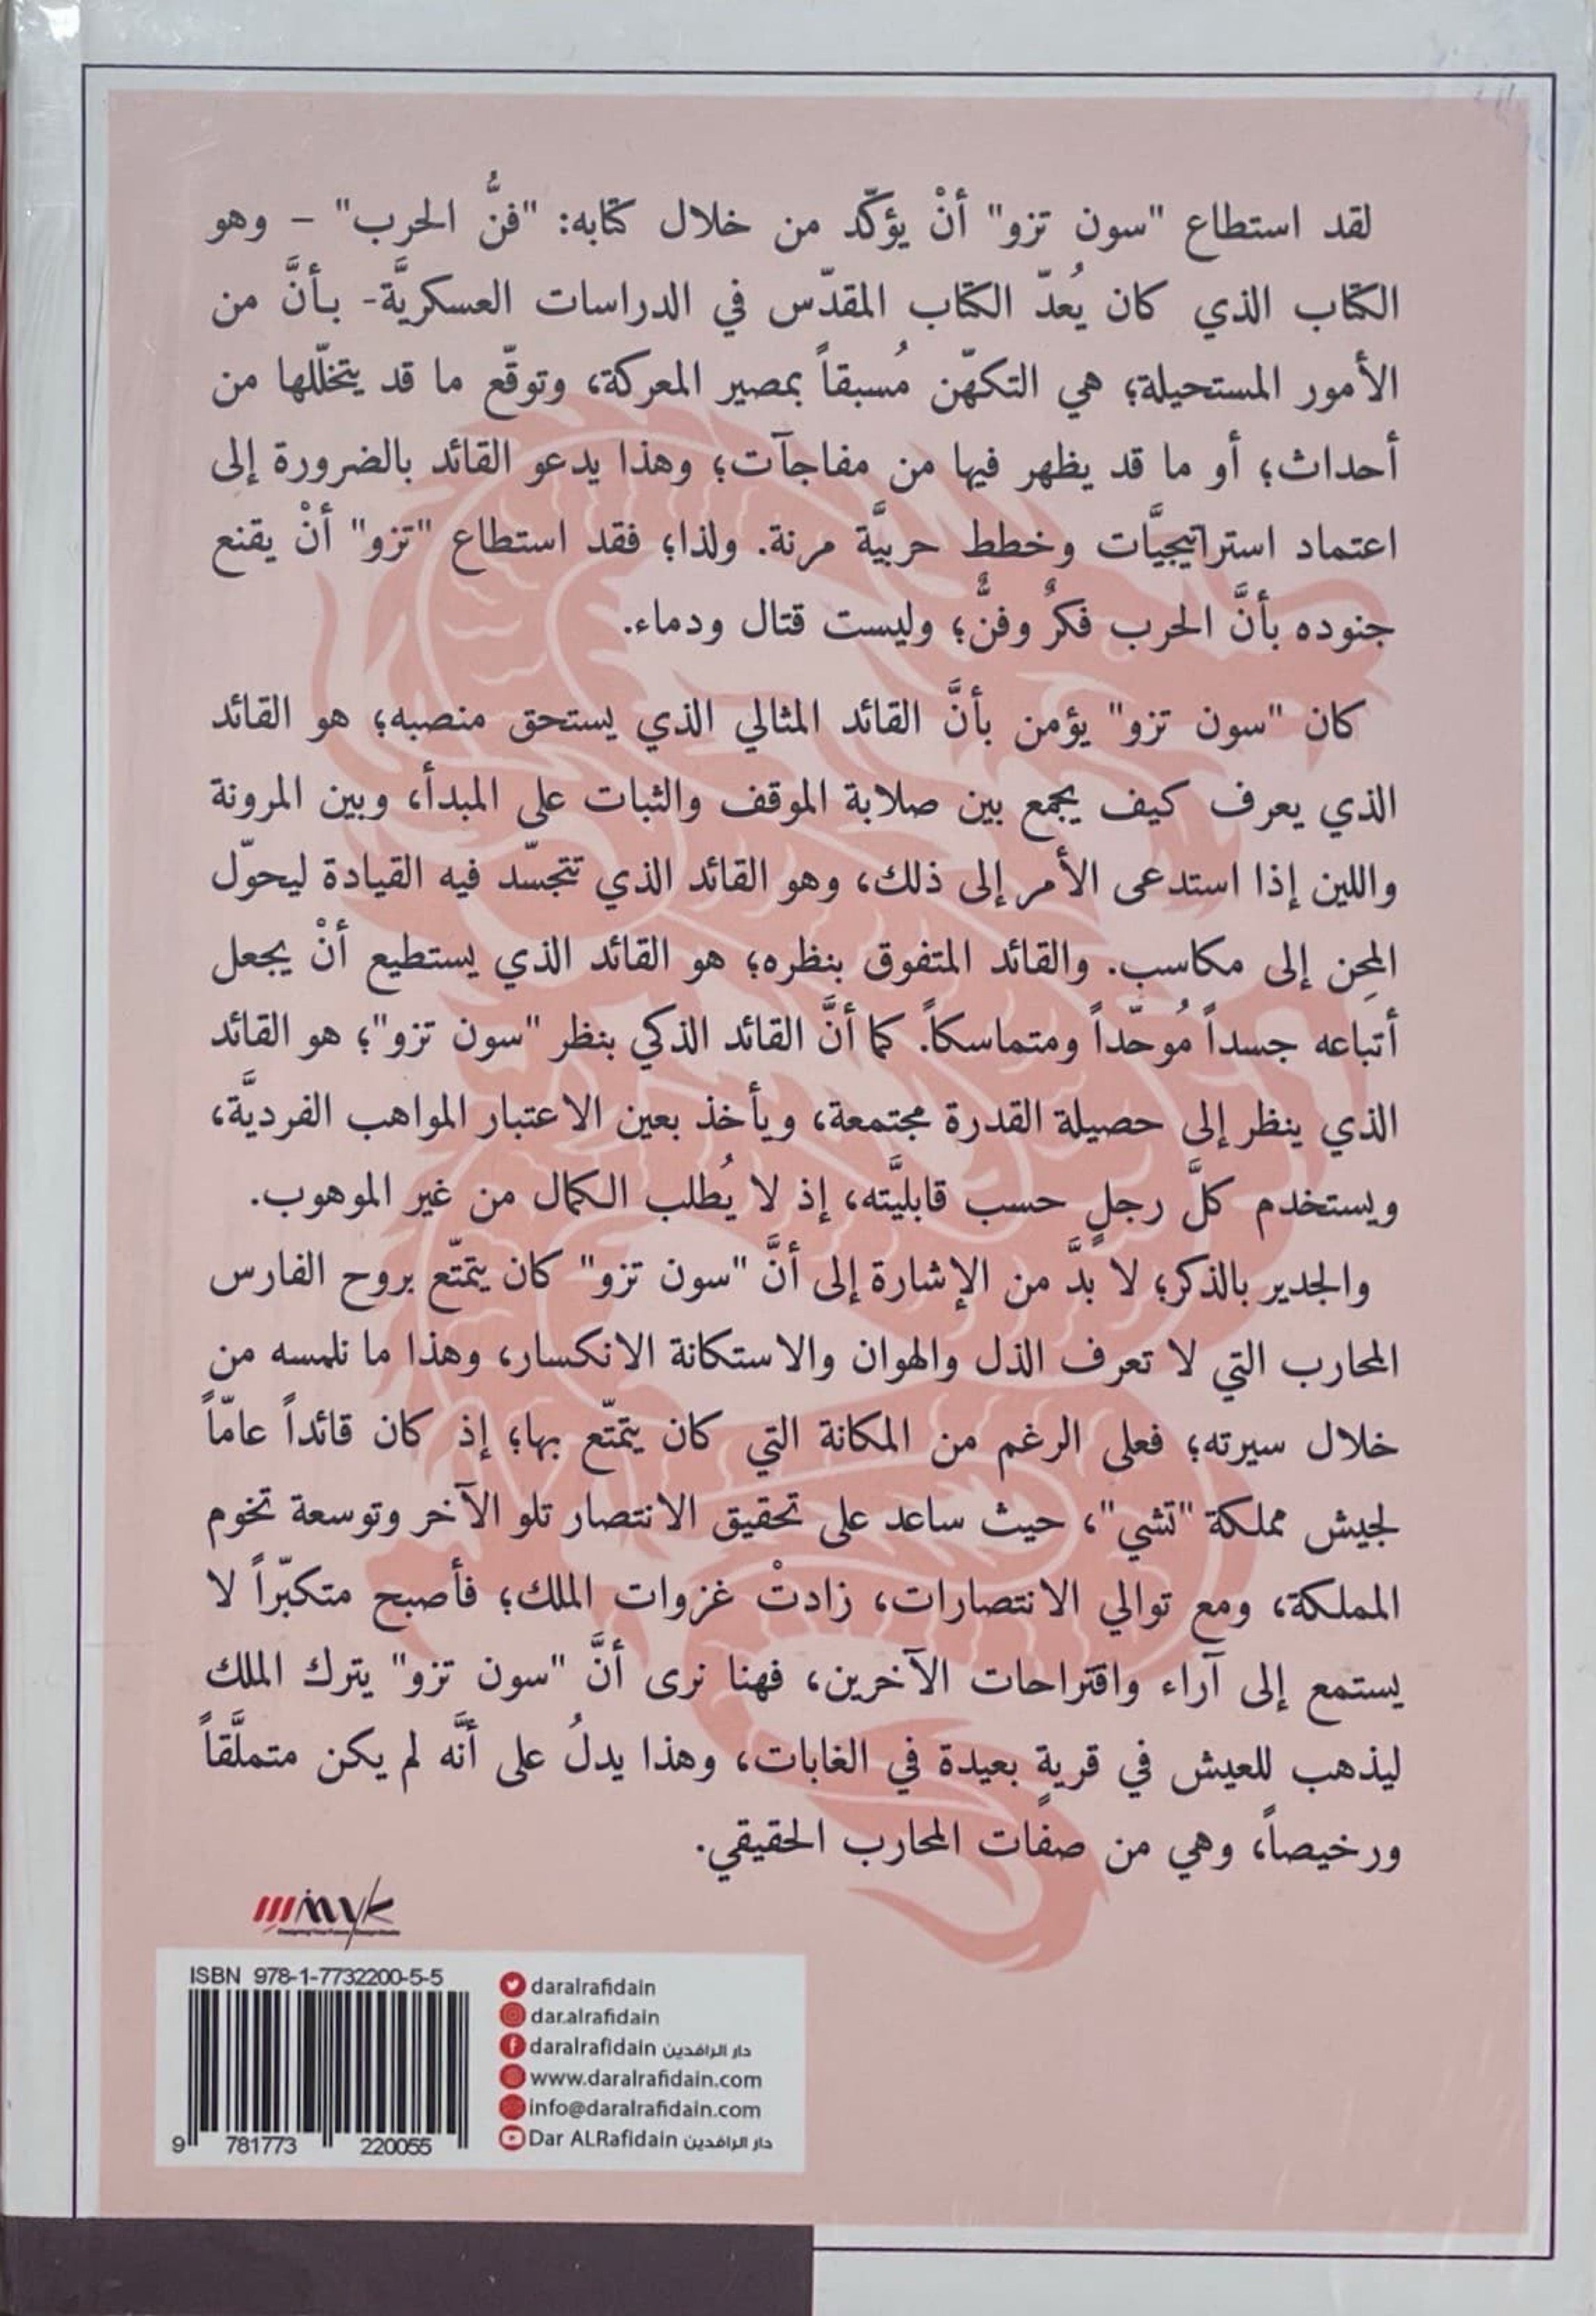 لقد استطاع "سون تزو" أنْ يؤكّد من خلال كتابه: "فنُّ الحرب" – وهو
الكتاب الذي كان يُعدّ الكتاب المقدّس في الدراسات العسكريَّة- بأنَّ من
الأمور المستحيلة؛ هي التكهّن مُسبقاً بمصير المعركة، وتوقّع ما قد يتخلّلها من
أحداث؛ أو ما قد يظهر فيها من مفاجآت؛ وهذا يدعو القائد بالضرورة إلى
اعتماد استراتيجيَّات وخطط حربيَّة مرنة. ولذا؛ فقد استطاع "تزو" أنْ يقنع
جنوده بأنَّ الحرب فكرٌ وفنٌّ؛ وليست قتال ودماء.
كان "سون تزو" يؤمن بأنَّ القائد المثالي الذي يستحق منصبه؛ هو القائد
الذي يعرف كيف يجمع بين صلابة الموقف والثبات على المبدأ، وبين المرونة
واللين إذا استدعى الأمر إلى ذلك، وهو القائد الذي تتجسّد فيه القيادة ليحوّل
المِحن إلى مكاسب. والقائد المتفوق بنظره؛ هو القائد الذي يستطيع أنْ يجعل
أتباعه جسداً مُوحّداً ومتماسكاً. كما أنَّ القائد الذكي بنظر "سون تزو"؛ هو القائد
الذي ينظر إلى حصيلة القدرة مجتمعة، ويأخذ بعين الاعتبار المواهب الفرديَّة،
ويستخدم كلَّ رجلٍ حسب قابليَّته، إذ لا يُطلب الكمال من غير الموهوب.
والجدير بالذكر؛ لا بدَّ من الإشارة إلى أنَّ "سون تزو" كان يتمتّع بروح الفارس
المحارب التي لا تعرف الذل والهوان والاستكانة الانكسار، وهذا ما نلمسه من
خلال سيرته؛ فعلى الرغم من المكانة التي كان يتمتّع بها؛ إذ كان قائداً عامّاً
لجيش مملكة "تشي"، حيث ساعد على تحقيق الانتصار تلو الآخر وتوسعة تخوم
المملكة، ومع توالي الانتصارات، زادتْ غزوات الملك؛ فأصبح متكبّراً لا
يستمع إلى آراء واقتراحات الآخرين، فهنا نرى أنَّ "سون تزو" يترك الملك
ليذهب للعيش في قريةٍ بعيدة في الغابات، وهذا يدلُ على أنَّه لم يكن متملَّقاً
ورخيصاً، وهي من صفات المحارب الحقيقي.
ISBN 978-1-7732200-5-5
9 781773 220055
daralrafidain
dar.alrafidain
daralrafidain دار الرافدين
www.daralrafidain.com
info@daralrafidain.com
Dar ALRafidain دار الرافدين